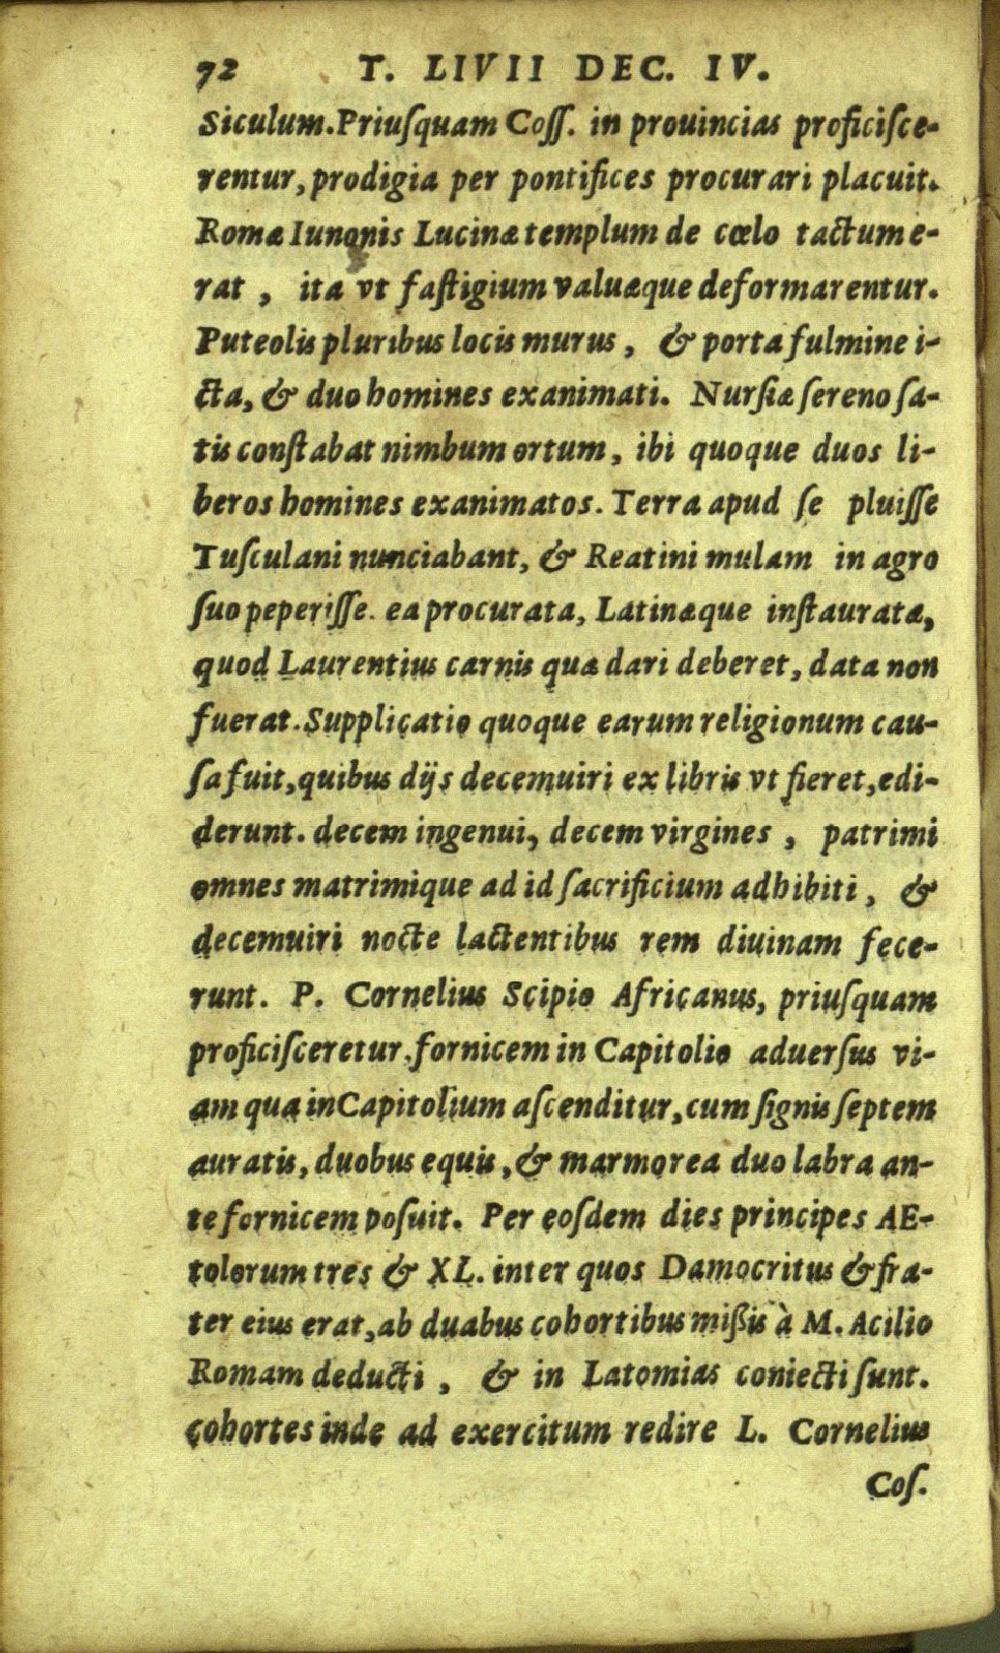 72 T. LIVII DEC. IV.
Siculum. Priuſquam Coſſ. in prouincias proficiſce-
rentur, prodigia per pontifices procurari placuit.
Romæ Iunonis Lucinæ templum de cœlo tactum e-
rat, ita vt faſtigium valuæque deformarentur.
Puteolis pluribus locis murus, & porta fulmine i-
cta, & duo homines exanimati. Nurſiæ ſereno ſa-
tis conſtabat nimbum ortum, ibi quoque duos li-
beros homines exanimatos. Terra apud ſe pluiſſe
Tuſculani nunciabant, & Reatini mulam in agro
ſuo peperiſſe. ea procurata, Latinæque inſtauratæ,
quod Laurentius carnis quæ dari deberet, data non
fuerat. Supplicatio quoque earum religionum cau-
ſa fuit, quibus dijs decemuiri ex libris vt fieret, edi-
derunt. decem ingenui, decem virgines, patrimi
omnes matrimique ad id ſacrificium adhibiti, &
decemuiri nocte lactentibus rem diuinam fece-
runt. P. Cornelius Scipio Africanus, priuſquam
proficiſceretur. fornicem in Capitolio aduerſus vi-
am qua in Capitolium aſcenditur, cum ſignis ſeptem
auratis, duobus equis, & marmorea duo labra an-
te fornicem poſuit. Per eoſdem dies principes AE-
tolorum tres & XL. inter quos Damocritus & fra-
ter eius erat, ab duabus cohortibus miſsis à M. Acilio
Romam deducti, & in Latomias coniecti ſunt.
cohortes inde ad exercitum redire L. Cornelius
Coſ.